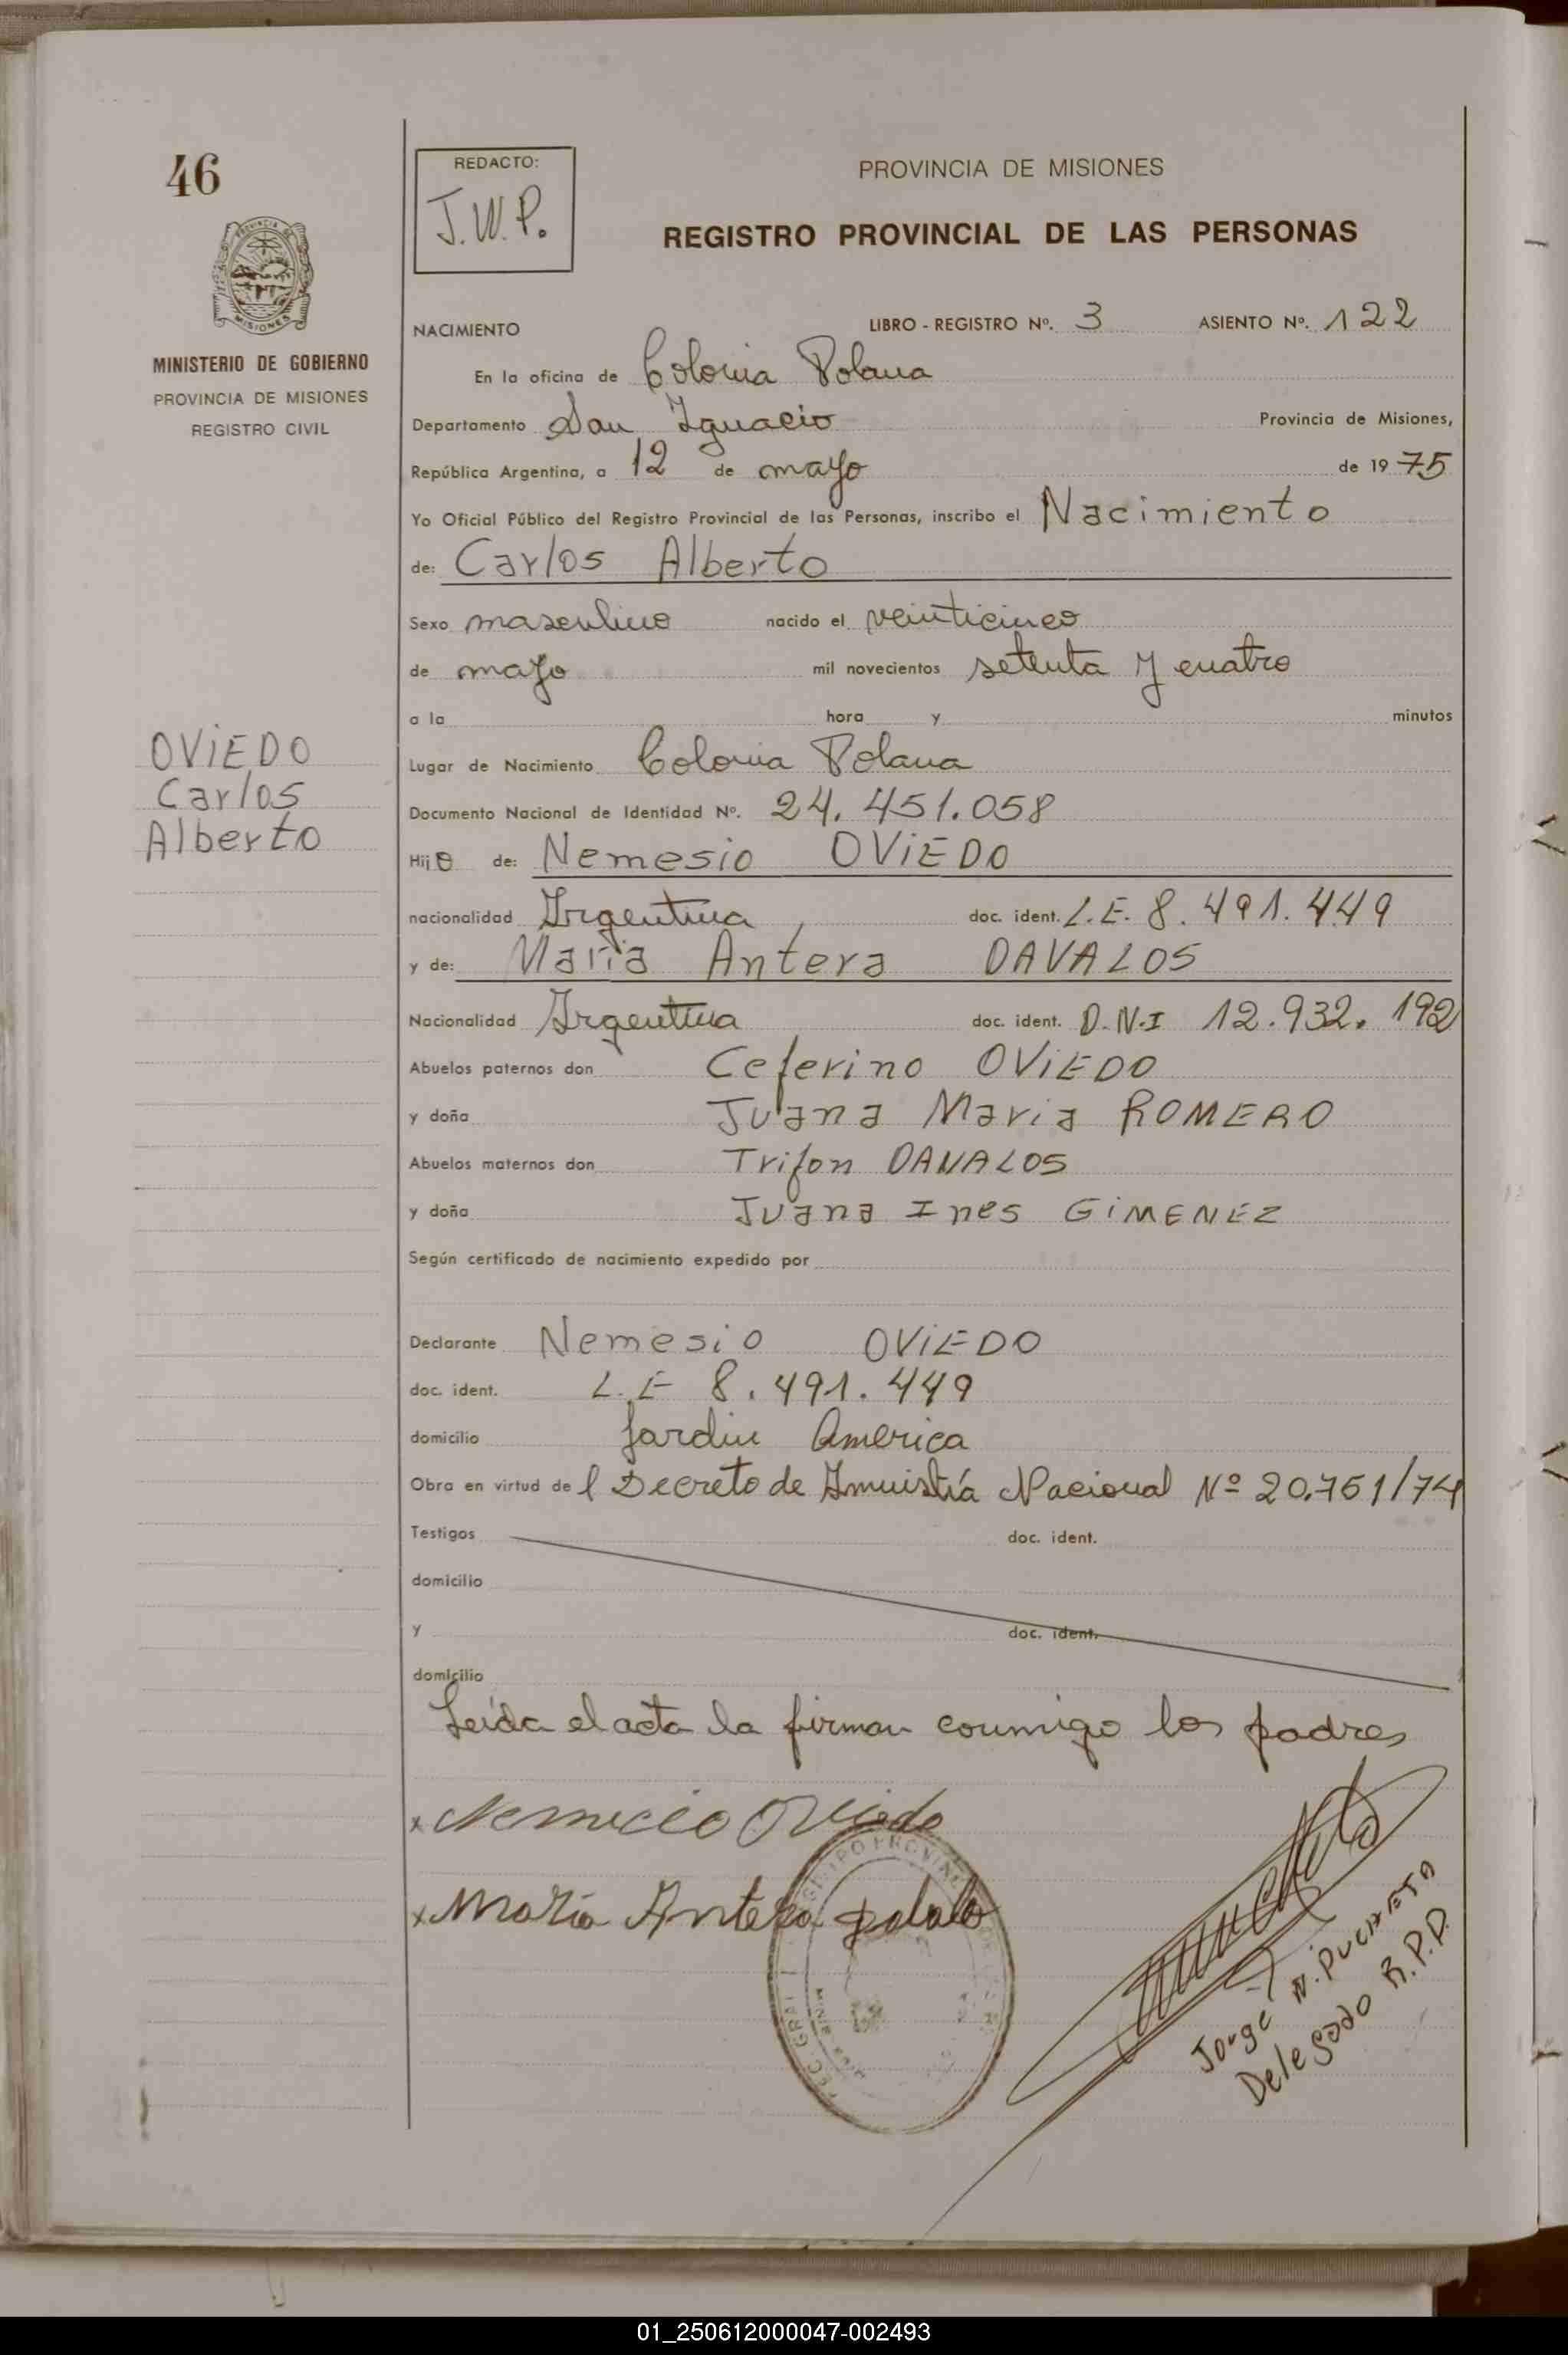 46
REDACTO:
J.W.P.
PROVINCIA DE MISIONES
REGISTRO PROVINCIAL DE LAS PERSONAS
MISIONES
MINISTERIO DE GOBIERNO
PROVINCIA DE MISIONES
REGISTRO CIVIL
NACIMIENTO LIBRO - REGISTRO Nº. 3 ASIENTO Nº. 122
En la oficina de Colonia Polana
Departamento San Ignacio Provincia de Misiones,
República Argentina, a 12 de mayo de 1975
Yo Oficial Público del Registro Provincial de las Personas, inscribo el Nacimiento
de: Carlos Alberto
Sexo masculino nacido el veinticinco
de mayo mil novecientos setenta y cuatro
a la hora y minutos
OViEDO
Carlos
Alberto
Lugar de Nacimiento Colonia Polana
Documento Nacional de Identidad Nº. 24.451.058
Hijo de: Nemesio OViEDO
nacionalidad Argentina doc. ident. L.E. 8.491.449
y de: Maria Antera DAVALOS
Nacionalidad Argentina doc. ident. D.N.I 12.932.192
Abuelos paternos don Ceferino OViEDO
y doña Juana Maria ROMERO
Abuelos maternos don Trifon DAVALOS
y doña Juana Ines GiMENEZ
Según certificado de nacimiento expedido por
Declarante Nemesio OViEDO
doc. ident. L.E 8.491.449
domicilio Jardin America
Obra en virtud del Decreto de Amnistía Nacional Nº 20.751/74
Testigos doc. ident.
domicilio
y doc. ident.
domicilio
Leída el acta la firman conmigo los padres
x Nemecio Oviedo
x María Antera
Jorge W. PUCHETA
Delegado R.P.P.
01_250612000047-002493